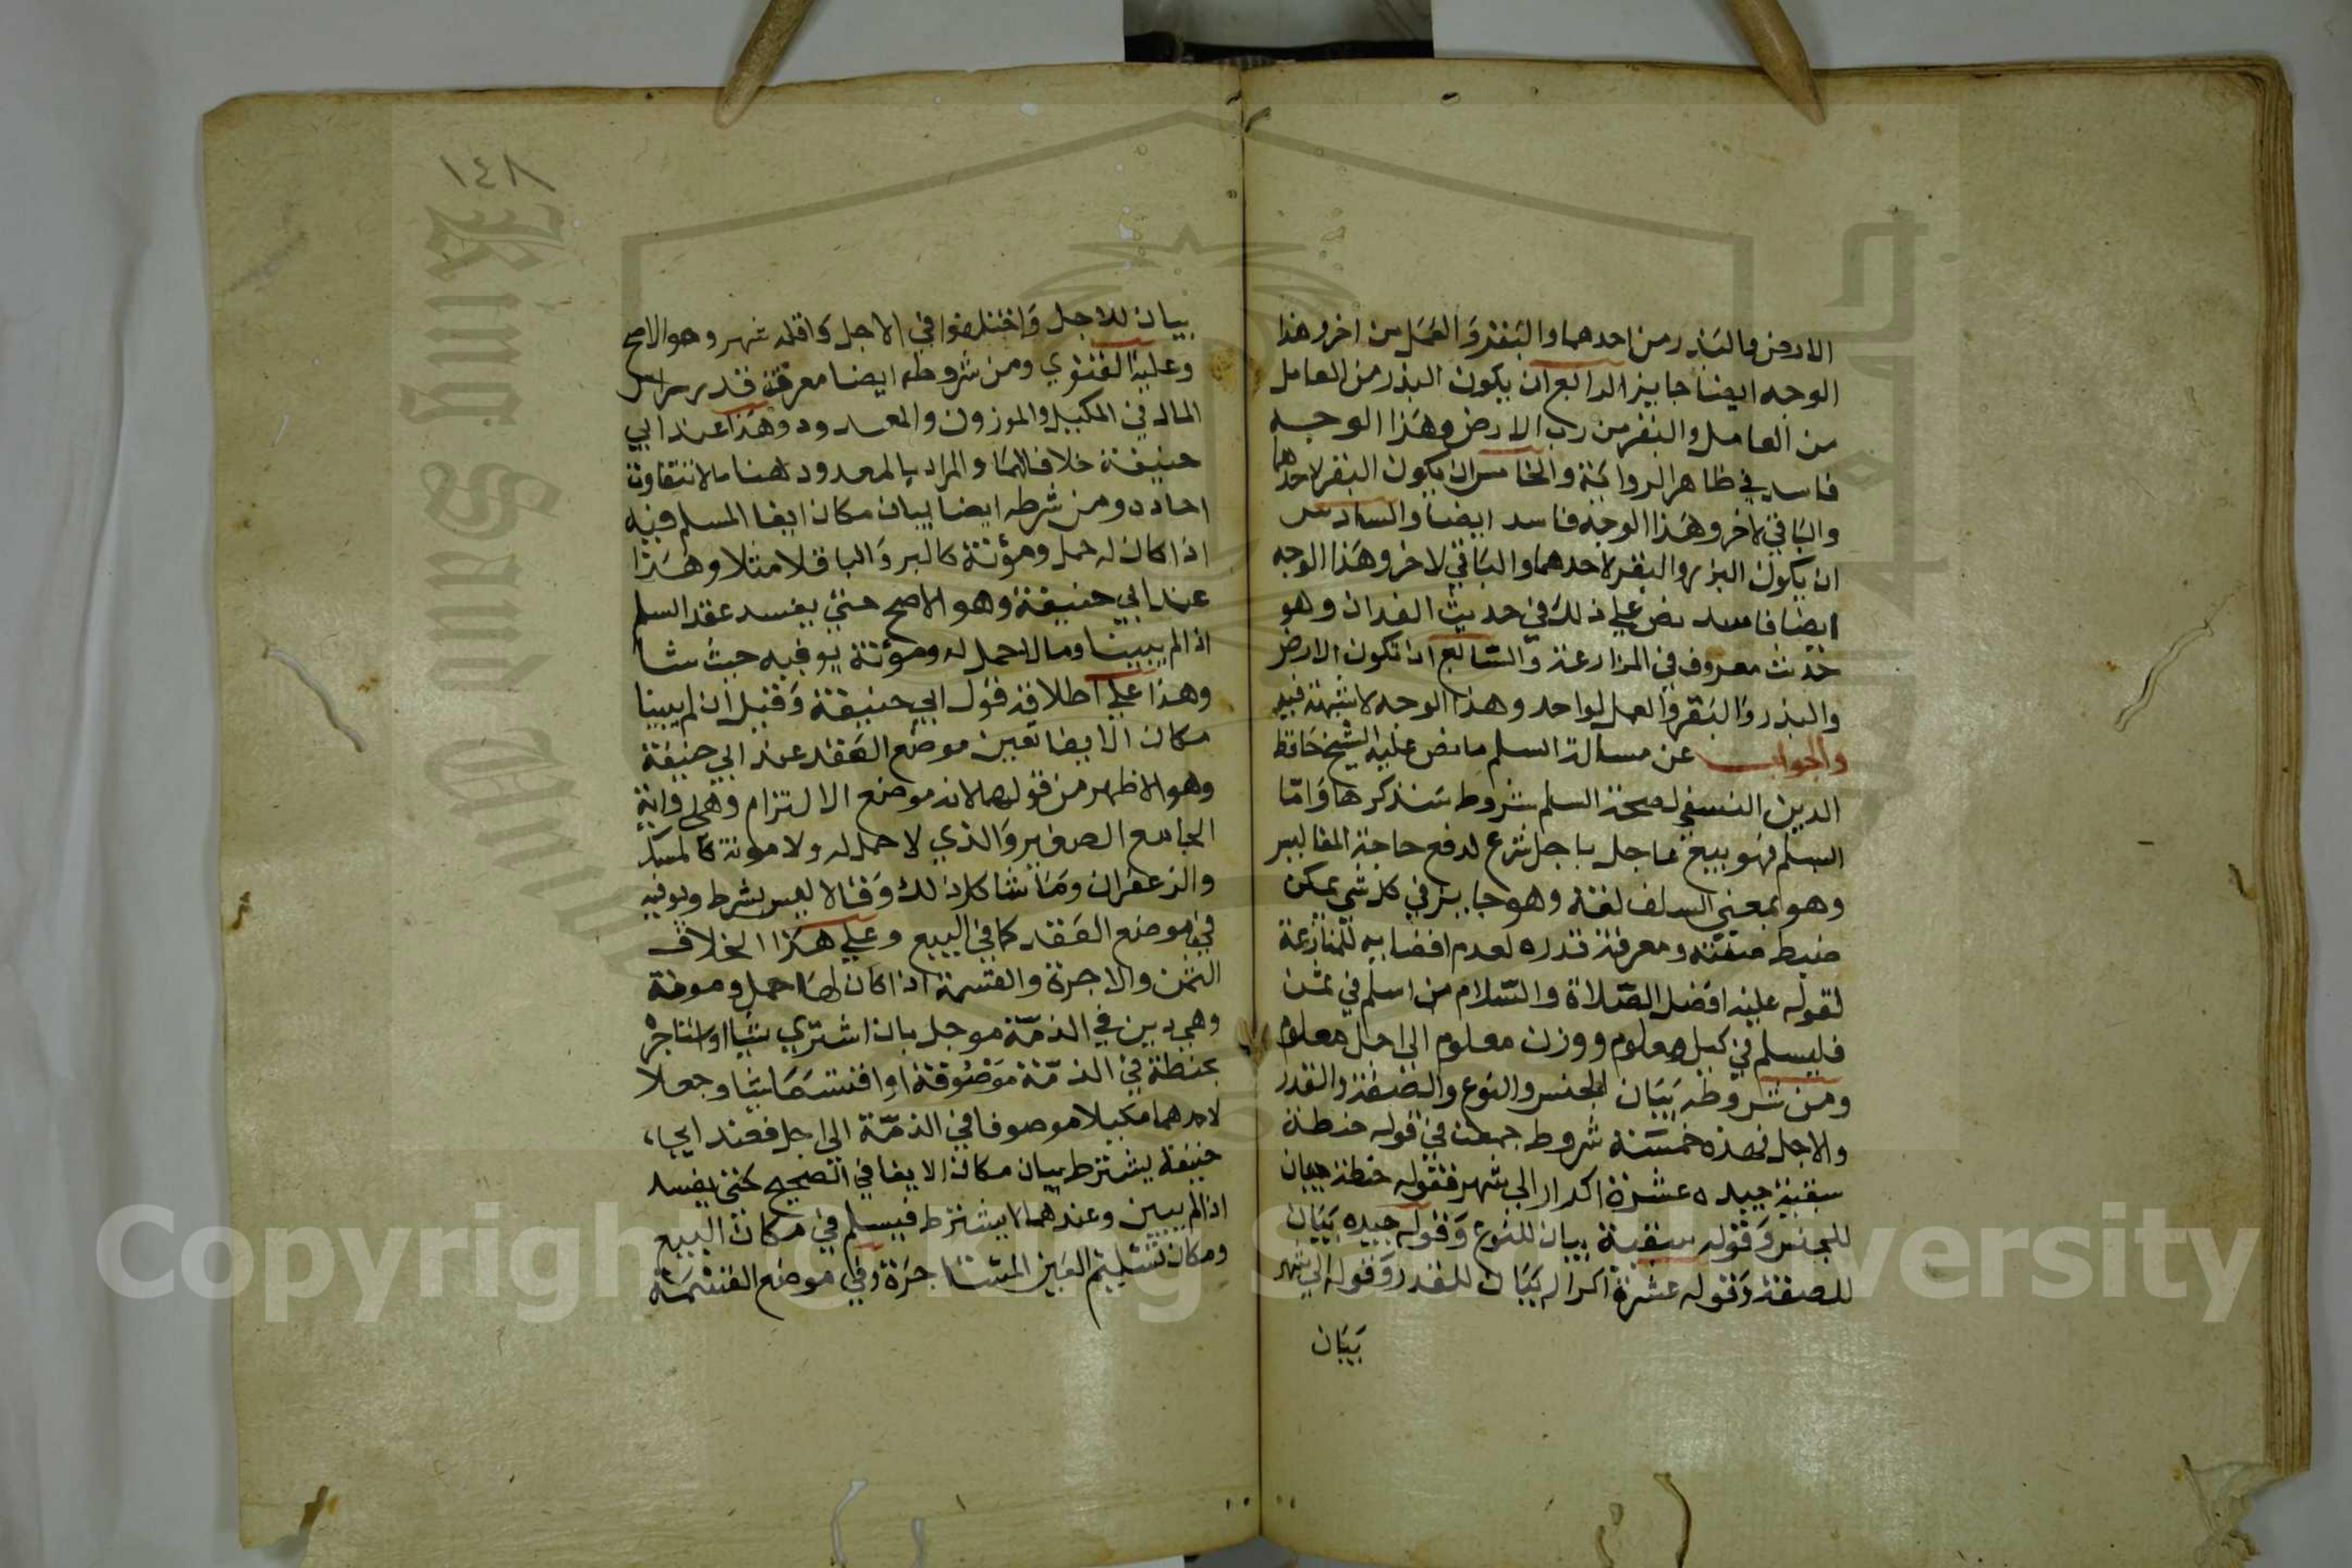 الارض والبذر من احدهما والبقر والعمل من اخر وهذا
الوجه ايضا جايز الرابع ان يكون البذر من العامل
من العامل والبقر من رب الارض وهذا الوجه
فاسد في ظاهر الرواية والخامس ان يكون البقر لاحدهما
والباقي لاخر وهذا الوجه فاسد ايضا والسادس
ان يكون البزر والبقر لاحدهما والباقي لاخر وهذا الوجه
ايضا فاسد نص علي ذلك في حديث الفدان وهو
حديث معروف في المزارعة والسابع اذا تكون الارض
والبذر والبقر والعمل لواحد وهذا الوجه لا شبهة فيه
والجواب عن مسالة السلم ما نص عليه الشيخ حافظ
الدين النسفي لصحة السلم شروط سنذكرها وامّا
السلم فهو بيع عاجل باجل شرع لدفع حاجة المفاليس
وهو بمعني السلف لغة وهو جايز في كل شي يمكن
ضبط صفته ومعرفة قدره لعدم افضايه للمنازعة
لقوله عليه افضل الصّلاة والسّلام من اسلم في ثمن
فليسلم في كيل معلوم ووزن معلوم الى اجل معلوم
ومن شروطه بيان الجنس والنوع والصفة والقدر
والاجل فهذه خمسة شروط جمعت في قوله حنطة
سقية جيده عشرة اكرار الي شهر فقوله حنطة بيان
للجنس وقوله سقية بيان للنوع وقوله جيده بيان
للصفة وقوله عشرة اكرار بيان للقدر وقوله الي شهر
بيان
١٤٨
بيان للاجل واختلفوا في الاجل واقله شهر وهو الاصح
وعليه الفتوي ومن شروطه ايضا معرفة قدر راس
المال في المكيل والموزون والمعدود وهذا عند ابي
حنيفة خلافا لهما والمراد بالمعدود هنا ما لا تتفاوت
احاده ومن شرطه ايضا بيان مكان ايفا المسلم فيه
اذا كان له حمل ومؤنة كالبر والباقلا مثلا وهذا
عند ابي حنيفة وهو الاصح حتي يفسد عقد السلم
اذا لم يبينا وما لا حمل له ومؤنة يوفيه حيث شا
وهذا علي اطلاقه قول ابي حنيفة وقيل ان لم يبينا
مكان الايفا تعين موضع العقد عند ابي حنيفة
وهو الاظهر من قولهما لانه موضع الالتزام وهي رواية
الجامع الصغير والذي لا حمل له ولا مونة كالمسك
والزعفران وما شاكل ذلك وقالا ليس بشرط ويوفيه
في موضع العقد كما في البيع وعلي هذا الخلاف
الثمن والاجرة والقسمة اذا كان لها حمل ومونة
وهي دين في الذمّة موجل بان اشتري شيا او استاجر
بحنطة في الذمّة موصوفة او اقتسما شيا وجعلا
لاحدهما مكيلا موصوفا في الذمّة الى اجل فعند ابي
حنيفة يشترط بيان مكان الايفا في الصحيح حتي يفسد
اذا لم يبين وعندهما لا يشترط فيسلم في مكان البيع
ومكان تسليم العين المستاجرة وفي موضع القسمة